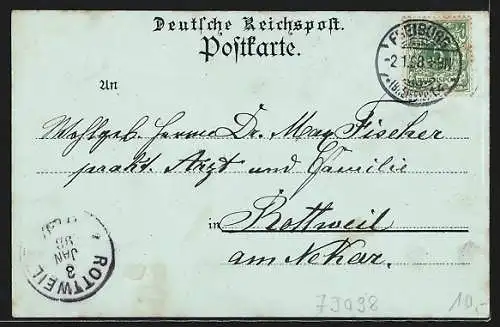 Deutsche Reichspost.
Postkarte.
FREIBURG
2.1.98
An
Wohlgeb. Herrn Dr. Max Fischer
prakt. Arzt und Familie
in Rottweil
am Nekar.
ROTTWEIL
3
JAN
98
73098
10,-